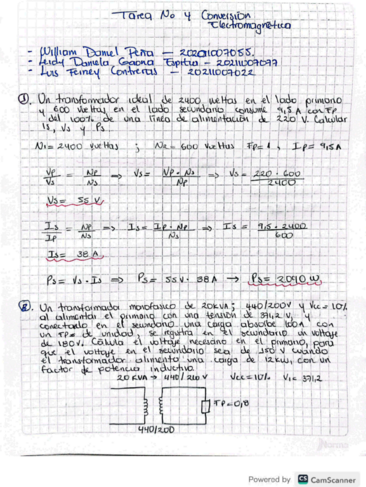 Tarea No 4 Conversión
Electromagnética
- William Daniel Peña — 20201007055.
- Leidy Daniela Gaona Espitia — 20211007077
- Luis Ferney Contreras — 20211007022
①. Un transformador ideal de 2400 vueltas en el lado primario
y 600 vueltas en el lado secundario consume 9,5 A con FP
del 100% de una línea de alimentación de 220 V. Calcular
Is, Vs y Ps.
N1 = 2400 vueltas ; N2 = 600 vueltas FP = 1 , Ip = 9,5A
Vp/Vs = Np/Ns ⇒ Vs = Vp · Ns/Np ⇒ Vs = 220 · 600/2400
Vs = 55 V.
Is/Ip = Np/Ns ⇒ Is = Ip · Np/Ns ⇒ Is = 9,5 · 2400/600
Is = 38 A
Ps = Vs · Is ⇒ Ps = 55V · 38A → Ps = 2090 W
②. Un transformada monofasico de 20KVA ; 440/200V y Vcc = 10%
al alimentar el primario con una tensión de 371,2 V, y
conectado en el secundario una carga absorbe 100A con
un FP de unidad, se registra en el secundario un voltaje
de 180V. Calcula el voltaje necesario en el primario, para
que el voltaje en el secundario sea de 150 V cuando
el transformador alimenta una carga de 12 KW, con un
factor de potencia inductiva.
20 KVA → 440/200 V Vcc = 10% V1 = 371,2
FP = 0,8
440/200
Powered by CS CamScanner